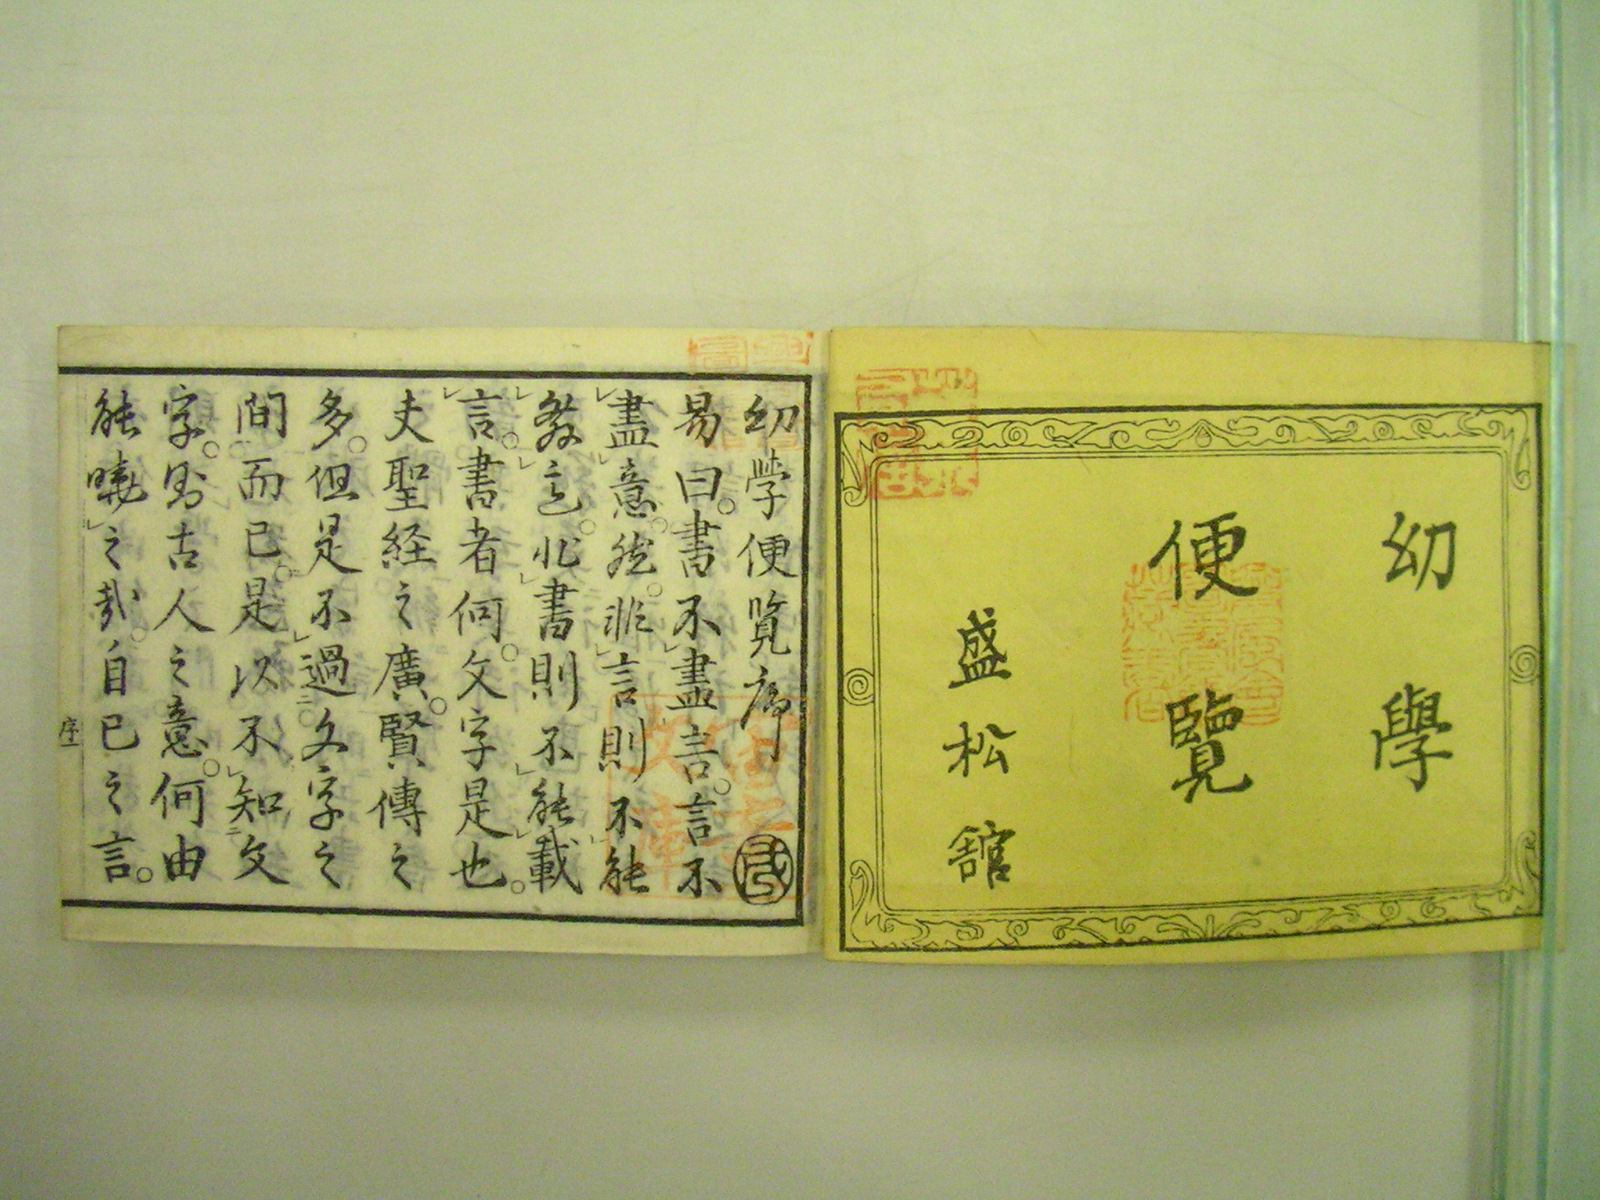 幼學
便覽
盛松舘
幼学便覧序
易曰。書不盡言。言不
盡意。然。非言則不能
発意。非書則不能載
言。書者何。文字是也。
夫聖経之廣。賢傳之
多。但是不過文字之
間而已。是以不知文
字。則古人之意。何由
能曉之哉。自己之言。
序